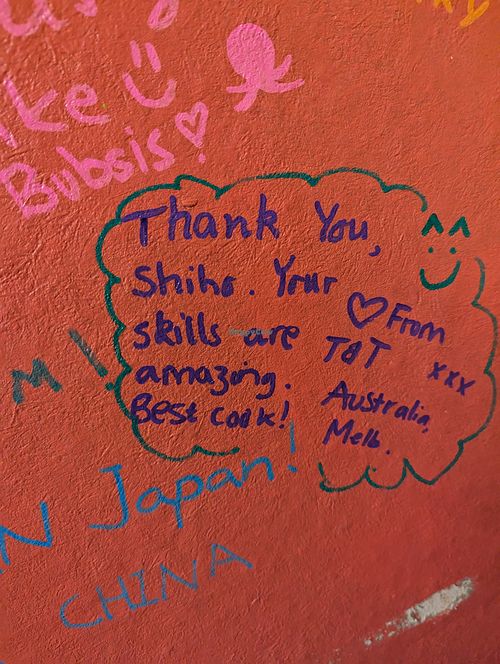 ke
Bubsis
Thank You,
Shiho. Your
skills are
amazing.
Best cook!
From
T&T
xxx
Australia,
Melb.
M!
N Japan!
CHINA